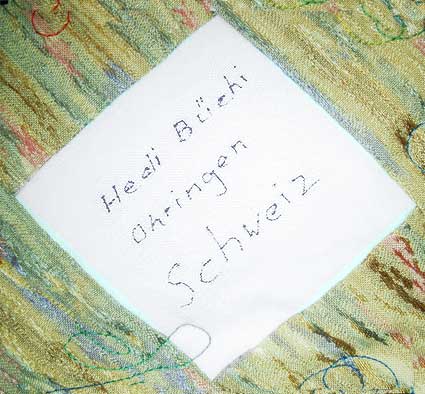 Hedi Büchi
Ohringen
Schweiz